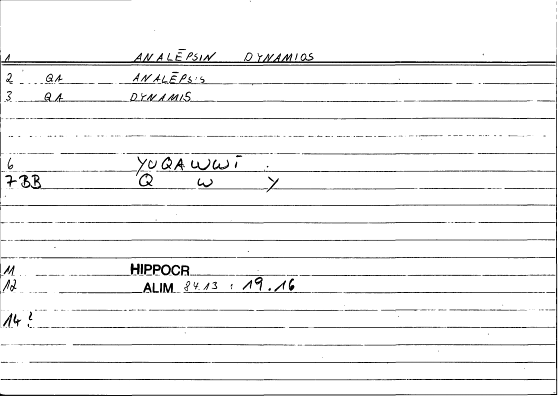 1 ANALĒPSIN DYNAMIOS
2 QA ANALĒPSIS
3 QA DYNAMIS
6 YUQAWWT .
7 BB Q W Y
11 HIPPOCR
12 ALIM 84.13 : 19.16
14 ?